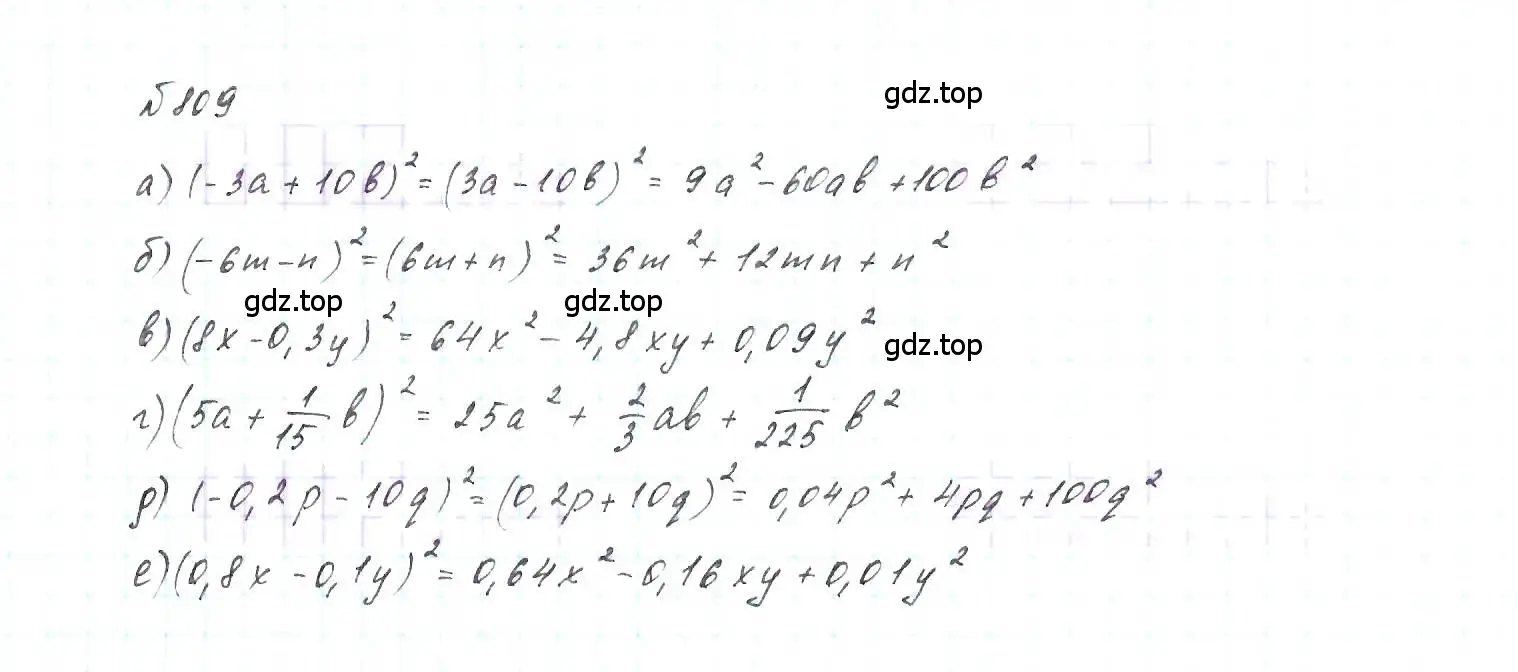 №809
gdz.top
а) (-3a + 10b)² = (3a - 10b)² = 9a² - 60ab + 100b²
б) (-6m - n)² = (6m + n)² = 36m² + 12mn + n²
gdz.top gdz.top
в) (8x - 0,3y)² = 64x² - 4,8xy + 0,09y²
gdz.top
г) (5a + 1/15 b)² = 25a² + 2/3 ab + 1/225 b²
д) (-0,2p - 10q)² = (0,2p + 10q)² = 0,04p² + 4pq + 100q²
е) (0,8x - 0,1y)² = 0,64x² - 0,16xy + 0,01y²